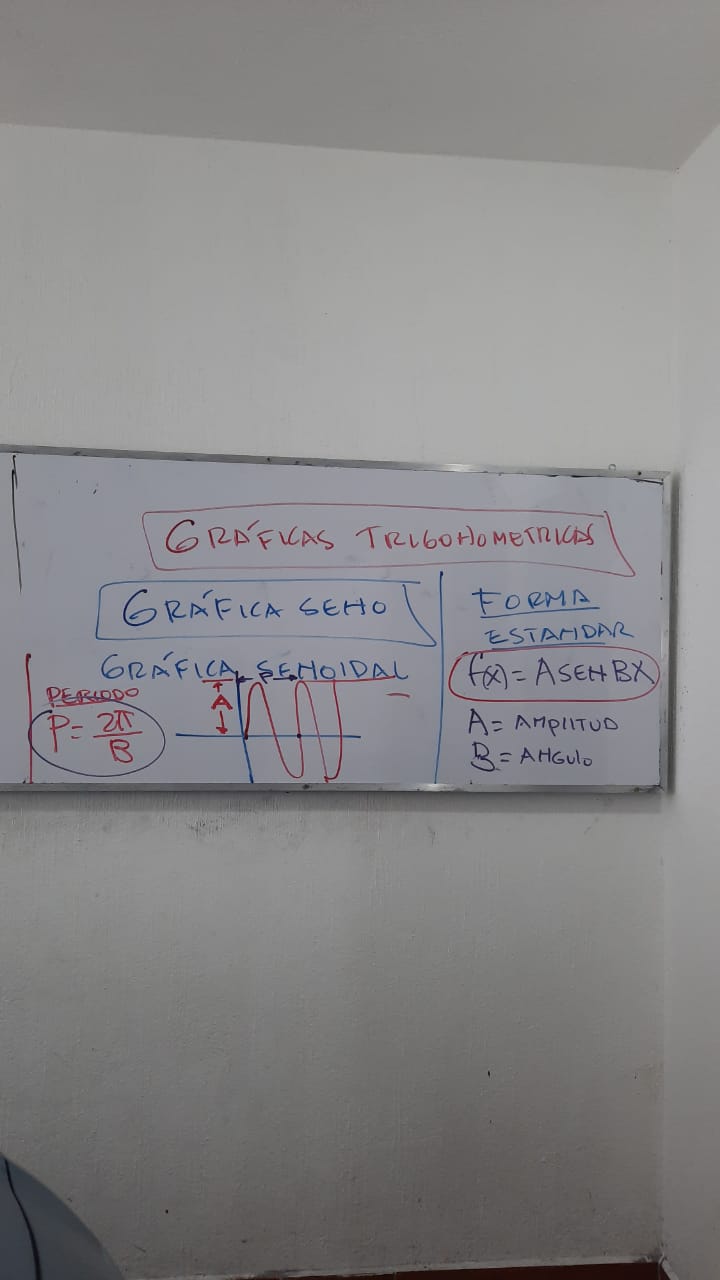 GRÁFICAS TRIGONOMETRICAS
GRÁFICA SENO
GRÁFICA SENOIDAL
PERIODO
P = 2π/B
A
FORMA
ESTANDAR
f(x) = A SEN BX
A = AMPLITUD
B = ANGULO